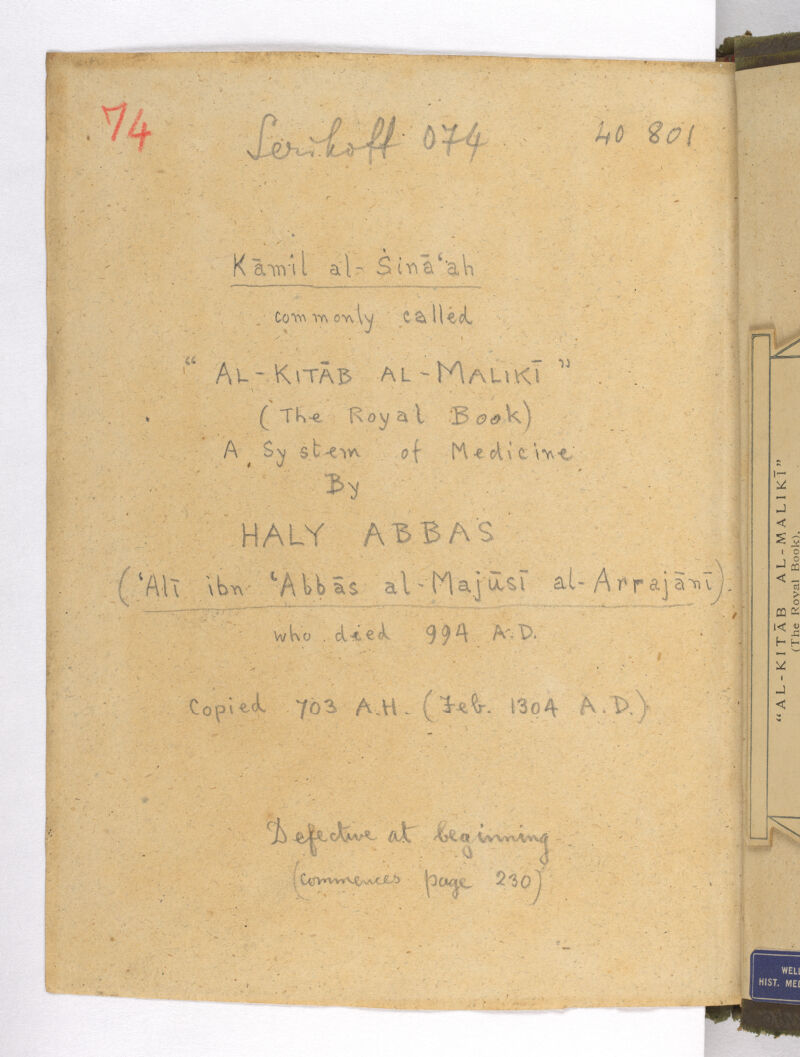 74
Serikoff 074
40 801
Kāmil al-Ṡinā‘ah
commonly called
“AL-KITĀB AL-MALIKĪ”
(The Royal Book)
A System of Medicine
By
HALY ABBAS
(‘Alī ibn ‘Abbās al-Majūsī al-Arrajānī).
who died 994 A.D.
Copied 703 A.H. (Feb. 1304 A.D.)
Defective at beginning
(commences page 230)
“AL-KITĀB AL-MALIKĪ”
(The Royal Book),
WELL
HIST. MED